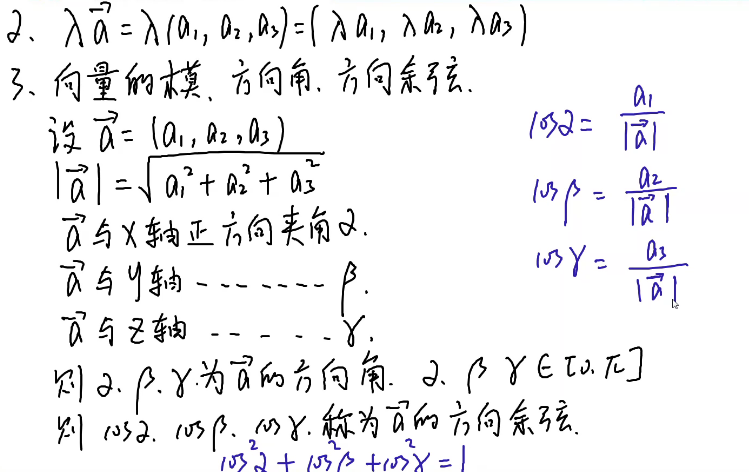 2、λa⃗ = λ(a₁, a₂, a₃) = (λa₁, λa₂, λa₃)
3、向量的模、方向角、方向余弦.
设 a⃗ = (a₁, a₂, a₃)
|a⃗| = √(a₁² + a₂² + a₃²)
a⃗ 与 X 轴正方向夹角 α.
a⃗ 与 y 轴 ------- β.
a⃗ 与 z 轴 ------ γ.
则 α、β、γ 为 a⃗ 的方向角. α、β γ ∈ [0, π]
则 cosα、cosβ、cosγ、称为 a⃗ 的方向余弦.
cos²α + cos²β + cos²γ = 1
cosα = a₁/|a⃗|
cosβ = a₂/|a⃗|
cosγ = a₃/|a⃗|